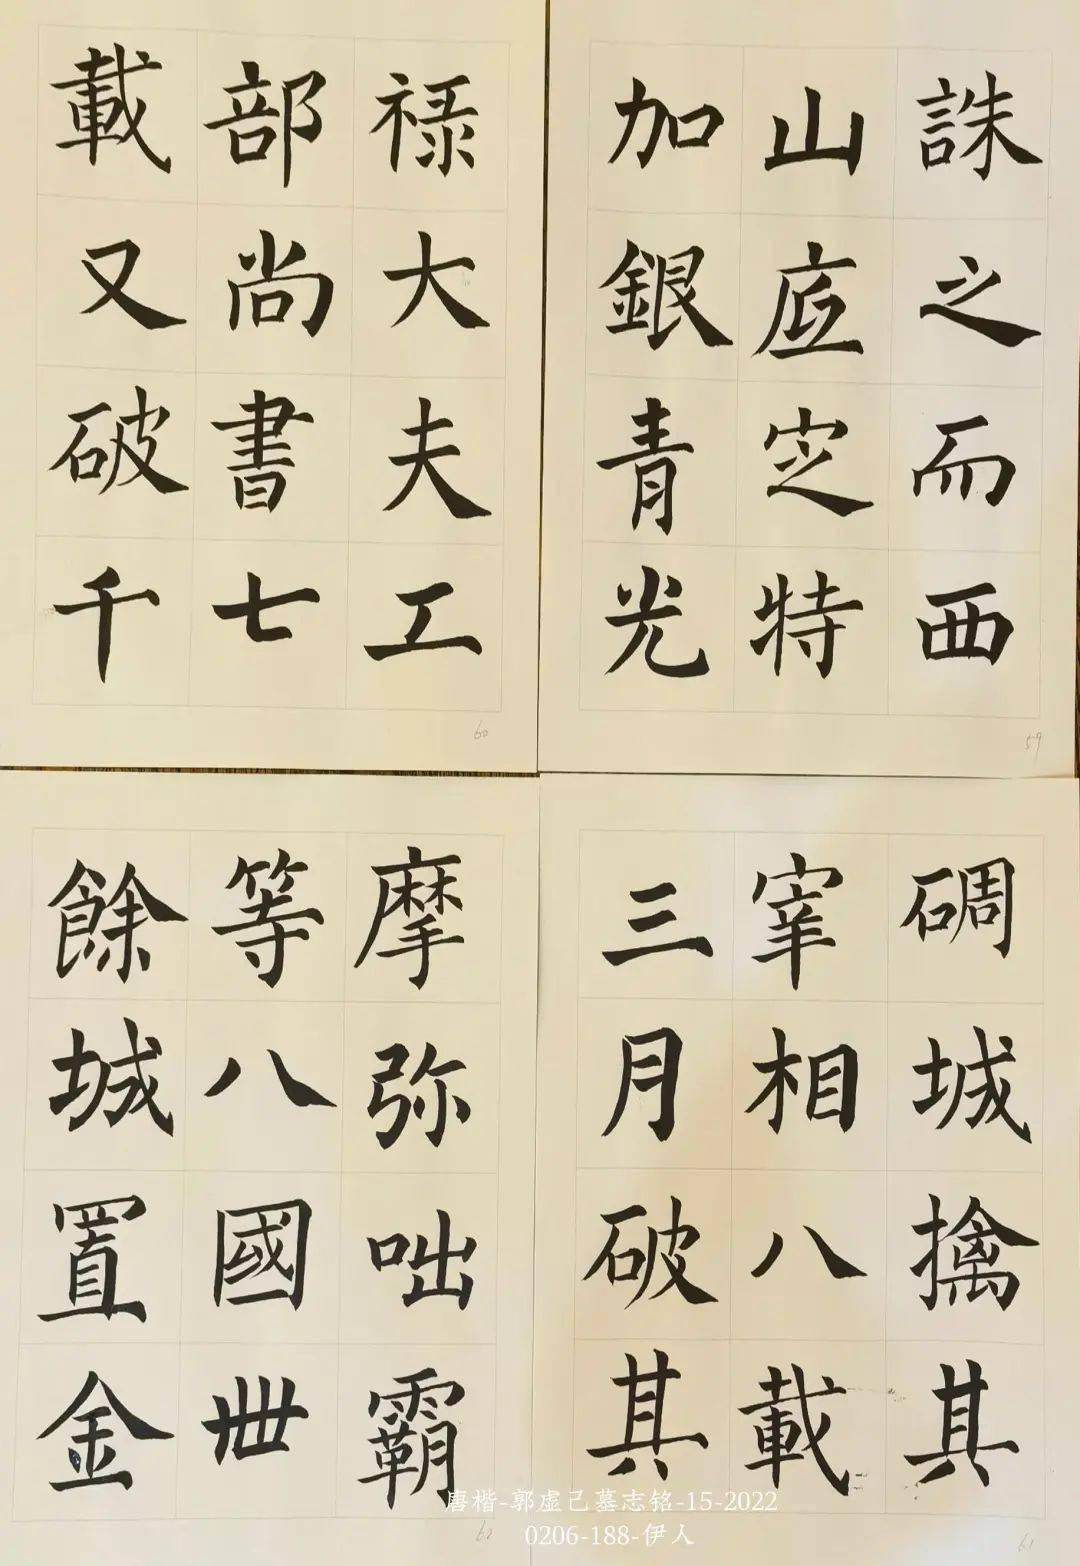 誅之而西
山底定特
加銀青光
59
禄大夫工
部尚書七
載又破千
60
碉城擒其
宰相八載
三月破其
61
摩弥咄霸
等八國卌
餘城置金
62
唐楷-郭虚己墓志铭-15-2022
0206-188-伊人